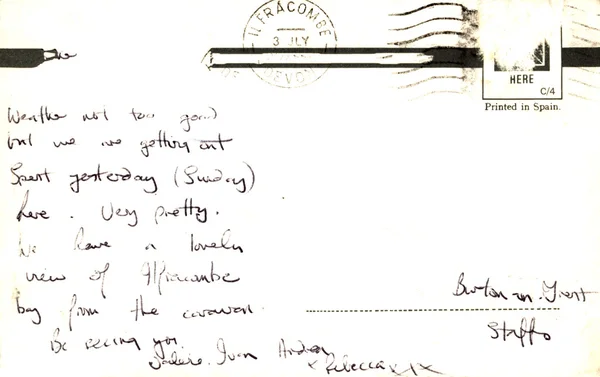 ILFRACOMBE
3 JLY
DEVON
HERE
C/4
Printed in Spain.
Weather not too good
but we are getting out
Spent yesterday (Sunday)
here. Very pretty.
We have a lovely
view of Ilfracombe
bay from the caravan.
Be seeing you.
Ivan Andrew
x Rebecca x x x
Burton-on-Trent
Staffs